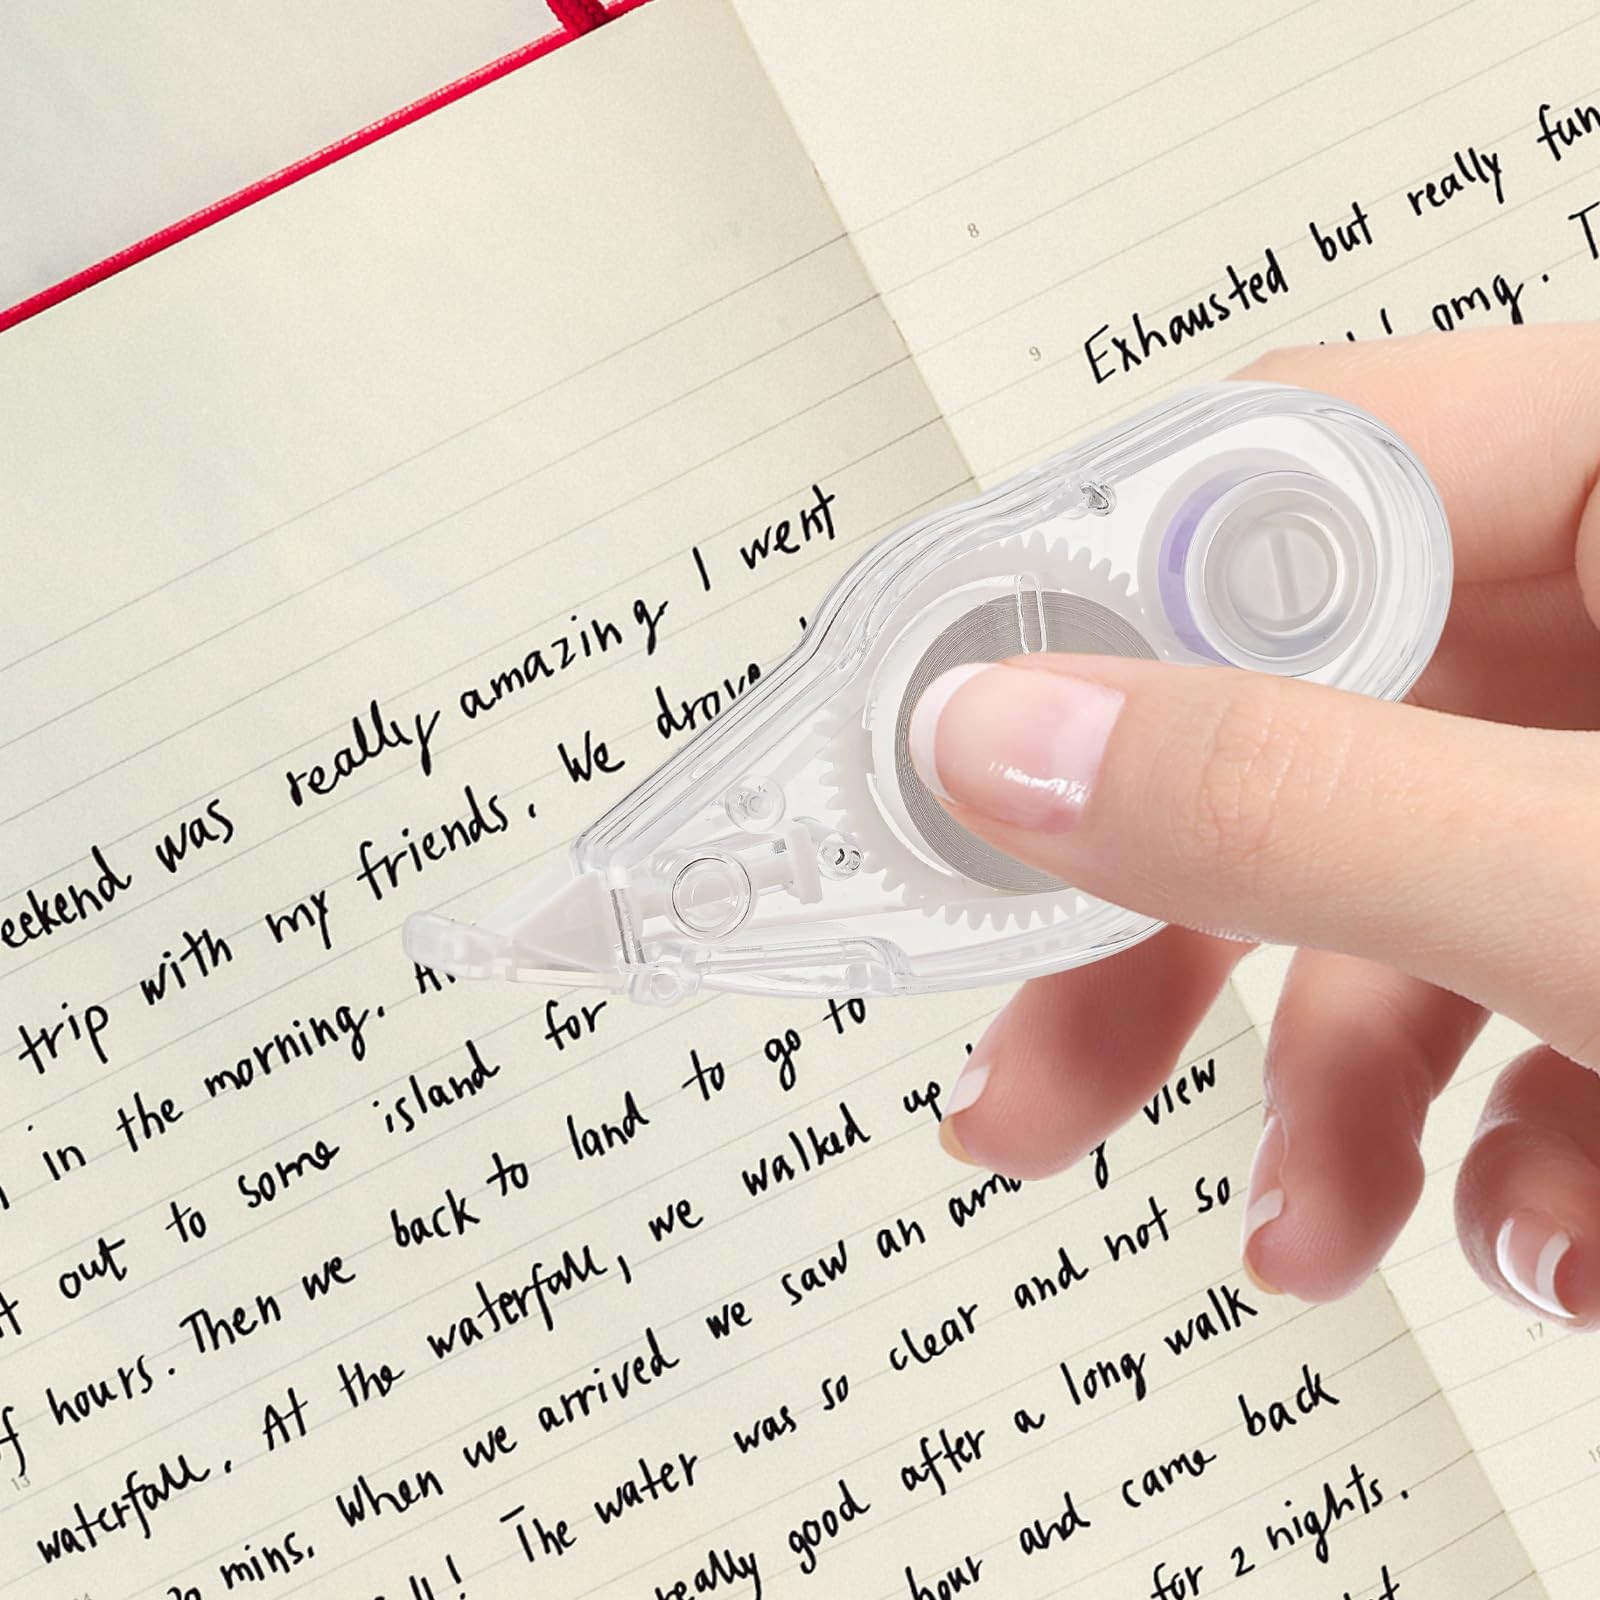 weekend was really amazing I went
trip with my friends. We drove
in the morning.
out to some island for
of hours. Then we back to land to go to
waterfall. At the waterfall, we walked up
20 mins. When we arrived we saw an amazing view
The water was so clear and not so
really good after a long walk
hour and came back
for 2 nights.
8
9
Exhausted but really fun
omg.
13
17